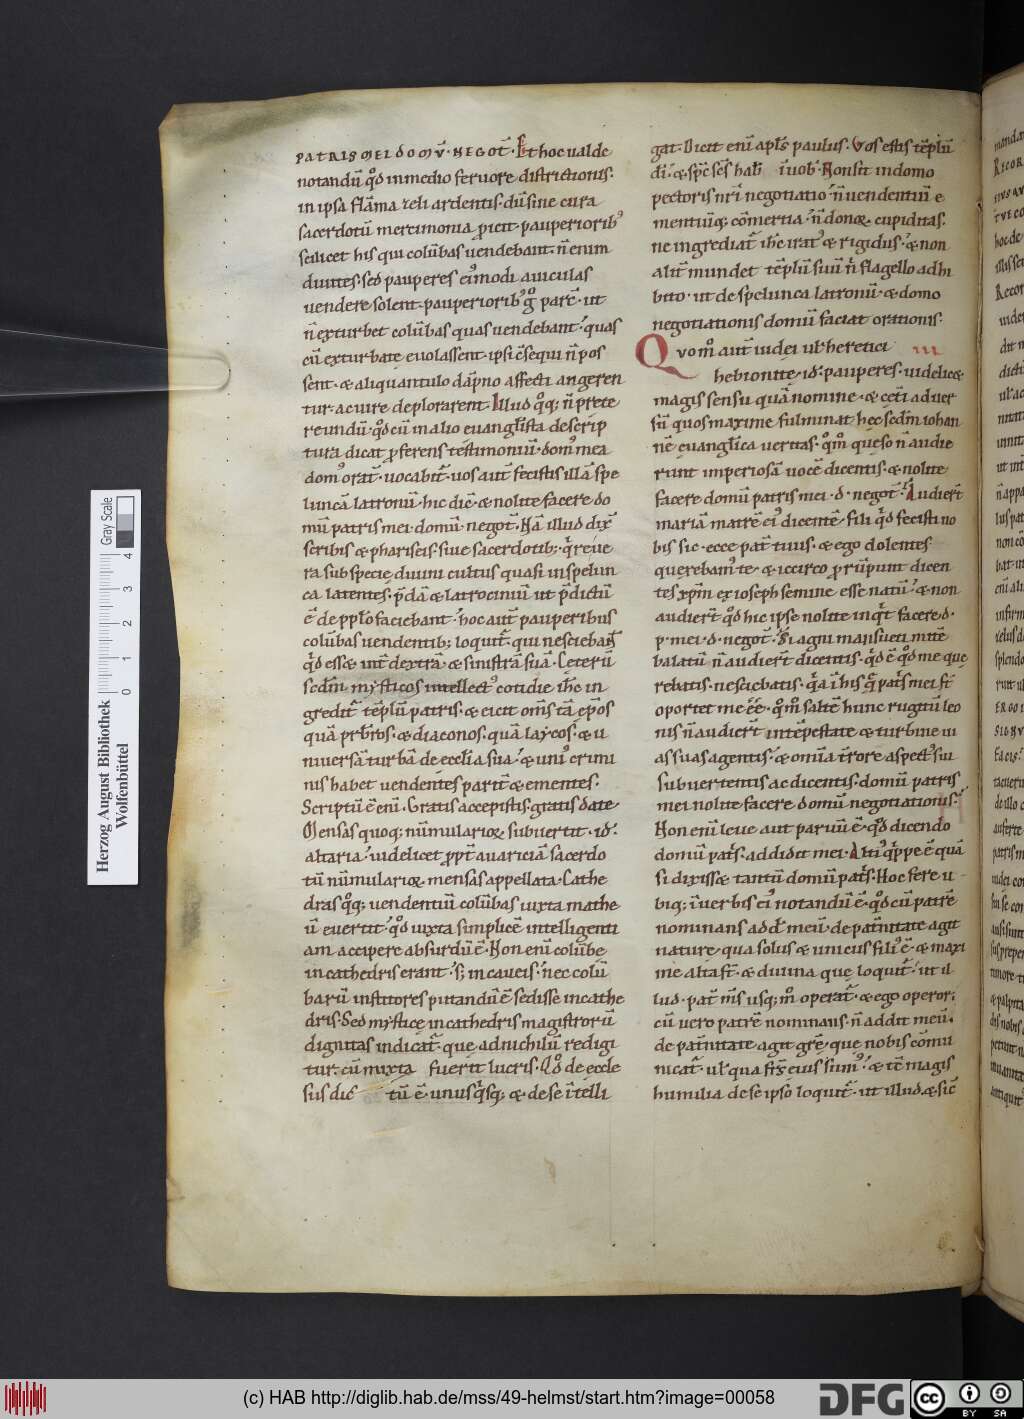 PATRIS MEI DOMŪ· NEGOT̄· Et hoc ualde
notandū qd̊ in medio feruore districtionis·
in ipsa flāma zeli ardentis· dū sine cura
sacerdotū mercimonia ꝓicit· pauperiorib;
scilicet his qui colūbas uendebant· n̄ enim
diuites· sed pauperes ei᾽modi auiculas
uendere solent· pauperiorib; g̊ parc̄· ut
n̄ exturbet colūbas quas uendebant· quas
cū exturbate euolassent· ipsi c̄sequi n̄ pos
sent· & aliquantulo dāpno affecti angeren
tur· ac uire deplorarent· Illud qq; n̄ prete
reundū· qd̊ cū in alio euangl̄ista descrip
tura dicat ꝓferens testimoniū· dom᾽ mea
dom᾽ orat̄· uocabit̄· uos aut̄ fecistis illā spe
luncā latronū· hic dic̄· & nolite facere do
mū patris mei· domū· negot̄· Nā illud dix̄
scribis & phariseis· siue sacerdotib;· q̄ reue
ra sub specie diuini cultus quasi in spelun
ca latentes· p̄dā & latrociniū ut p̄dictū
ē de pp̄lo faciebant· hoc aut̄ pauperibus
colūbas uendentib; loquit̄· qui nesciebant
qd̄ eēt int̄ dextrā & sinistrā suā· Ceterū
scd̄m mysticos intellect᾽ cotidie ih̄c in
gredit̄ tēplū patris· & eicit om̄s tā ep̄os
quā prb̄ros· & diaconos· quā laycos· & u
niuersā turbā de eccl̄ia sua· & uni᾽ crimi
nis habet uendentes parit̄ & ementes·
Scriptū ē eni̅· Gratis accepistis· gratis date
Mensas quoq; nūmularioꝝ subuertit· id·
altaria· uidelicet ꝓpt̄ auariciā sacerdo
tū nūmularioꝝ mensas appellata· Cathe
dras qq; uendentiū colūbas iuxta mathe
ū euertit· qd̊ iuxta simplicē intelligenti
am accipere absurdū ē· Non eni̅ colūbe
in cathedris erant· s; in caueis· nec colū
barū institores putandū ē sedisse in cathe
dris· Sed mystice in cathedris magistrorū
dignitas indicat̄· que ad nichilū redigi
tur· cū mixta fuerit lucris· Qd̊ de eccle
siis dic̄ tū ē· unusq̄sq; & de se ītelli
gat· Dicit eni̅ apl̄s paulus· Vos estis tēplū
di· & sp̄c sc̄s hab̄ ī uob̄· Non sit in domo
pectoris nr̄i negotiatio· n̄ uendentiū e
mentiūq; cōmertia· n̄ donoꝝ cupiditas·
ne ingrediat̄ ih̄c irat᾽ & rigidus· & non
alit̄ mundet tēplū suū n̄ flagello adhi
bito· ut de spelunca latronū· & domo
negotiationis domū faciat orationis·
Quom̊ aut̄ iudei ul̄ heretici III
hebionite· id· pauperes· uidelicet
magis sensu quā nomine· & cet̄i aduer
sū quos maxime fulminat hec scd̄m iohan
nē euangl̄ica ueritas· qm̊ queso n̄ audie
runt imperiosā uocē dicentis· & nolite
facere domū patris mei· d· negot̄· Audier̄t
mariā matrē ei᾽ dicentē· fili qd̄ fecisti no
bis sic· ecce pat̄ tuus· & ego dolentes
querebam᾽ te· & iccirco ꝓrūpunt dicen
tes xp̄m ex ioseph semine esse natū· & non
audier̄t qd̊ hic ipse nolite inq̄t facere d·
p· mei· d· negot̄· Si agni mansueti mitē
balatū n̄ audier̄t dicentis· qd̄ ē qd̊ me que
rebatis· nesciebatis· q̄a ī his q̄ pat̄s mei st̄
oportet me ēē· qm̊ saltē hunc rugitū leo
nis n̄ audier̄t intēpestate & turbine ui
as suas agentis· & omnia t̄rore aspect᾽ sui
subuertentis ac dicentis· domū patris
mei nolite facere domū negotiationis·
Non eni̅ leue aut paruū ē· qd̊ dicendo
domū pat̄s· addidit mei· Alti᾽ q̄ppe ē quā
si dixisset tantū domū pat̄s· Hoc fere u
biq; ī uerbis ei᾽ notandū ē· qd̊ cū patrē
nominans add̄ meū· de pat̄nitate agit
nature· qua solus & unicus fili᾽ ē· & maxi
me alta st̄· & diuina que loquit̄· ut il
lud· pat̄ m̄s usq; m̊ operat̄· & ego operor·
cū uero patrē nominans· n̄ addit meū·
de pat̄nitate agit gr̄e· que nobis cōmu
nicat̄· ul̄ qua frs̄ eius sum᾽· & tē magis
humilia de se ipso loquit̄· ut illud· & sic̄
(c) HAB http://diglib.hab.de/mss/49-helmst/start.htm?image=00058
Herzog August Bibliothek
Wolfenbüttel
0 1 2 3 4
Gray Scale
DFG
cc
BY SA